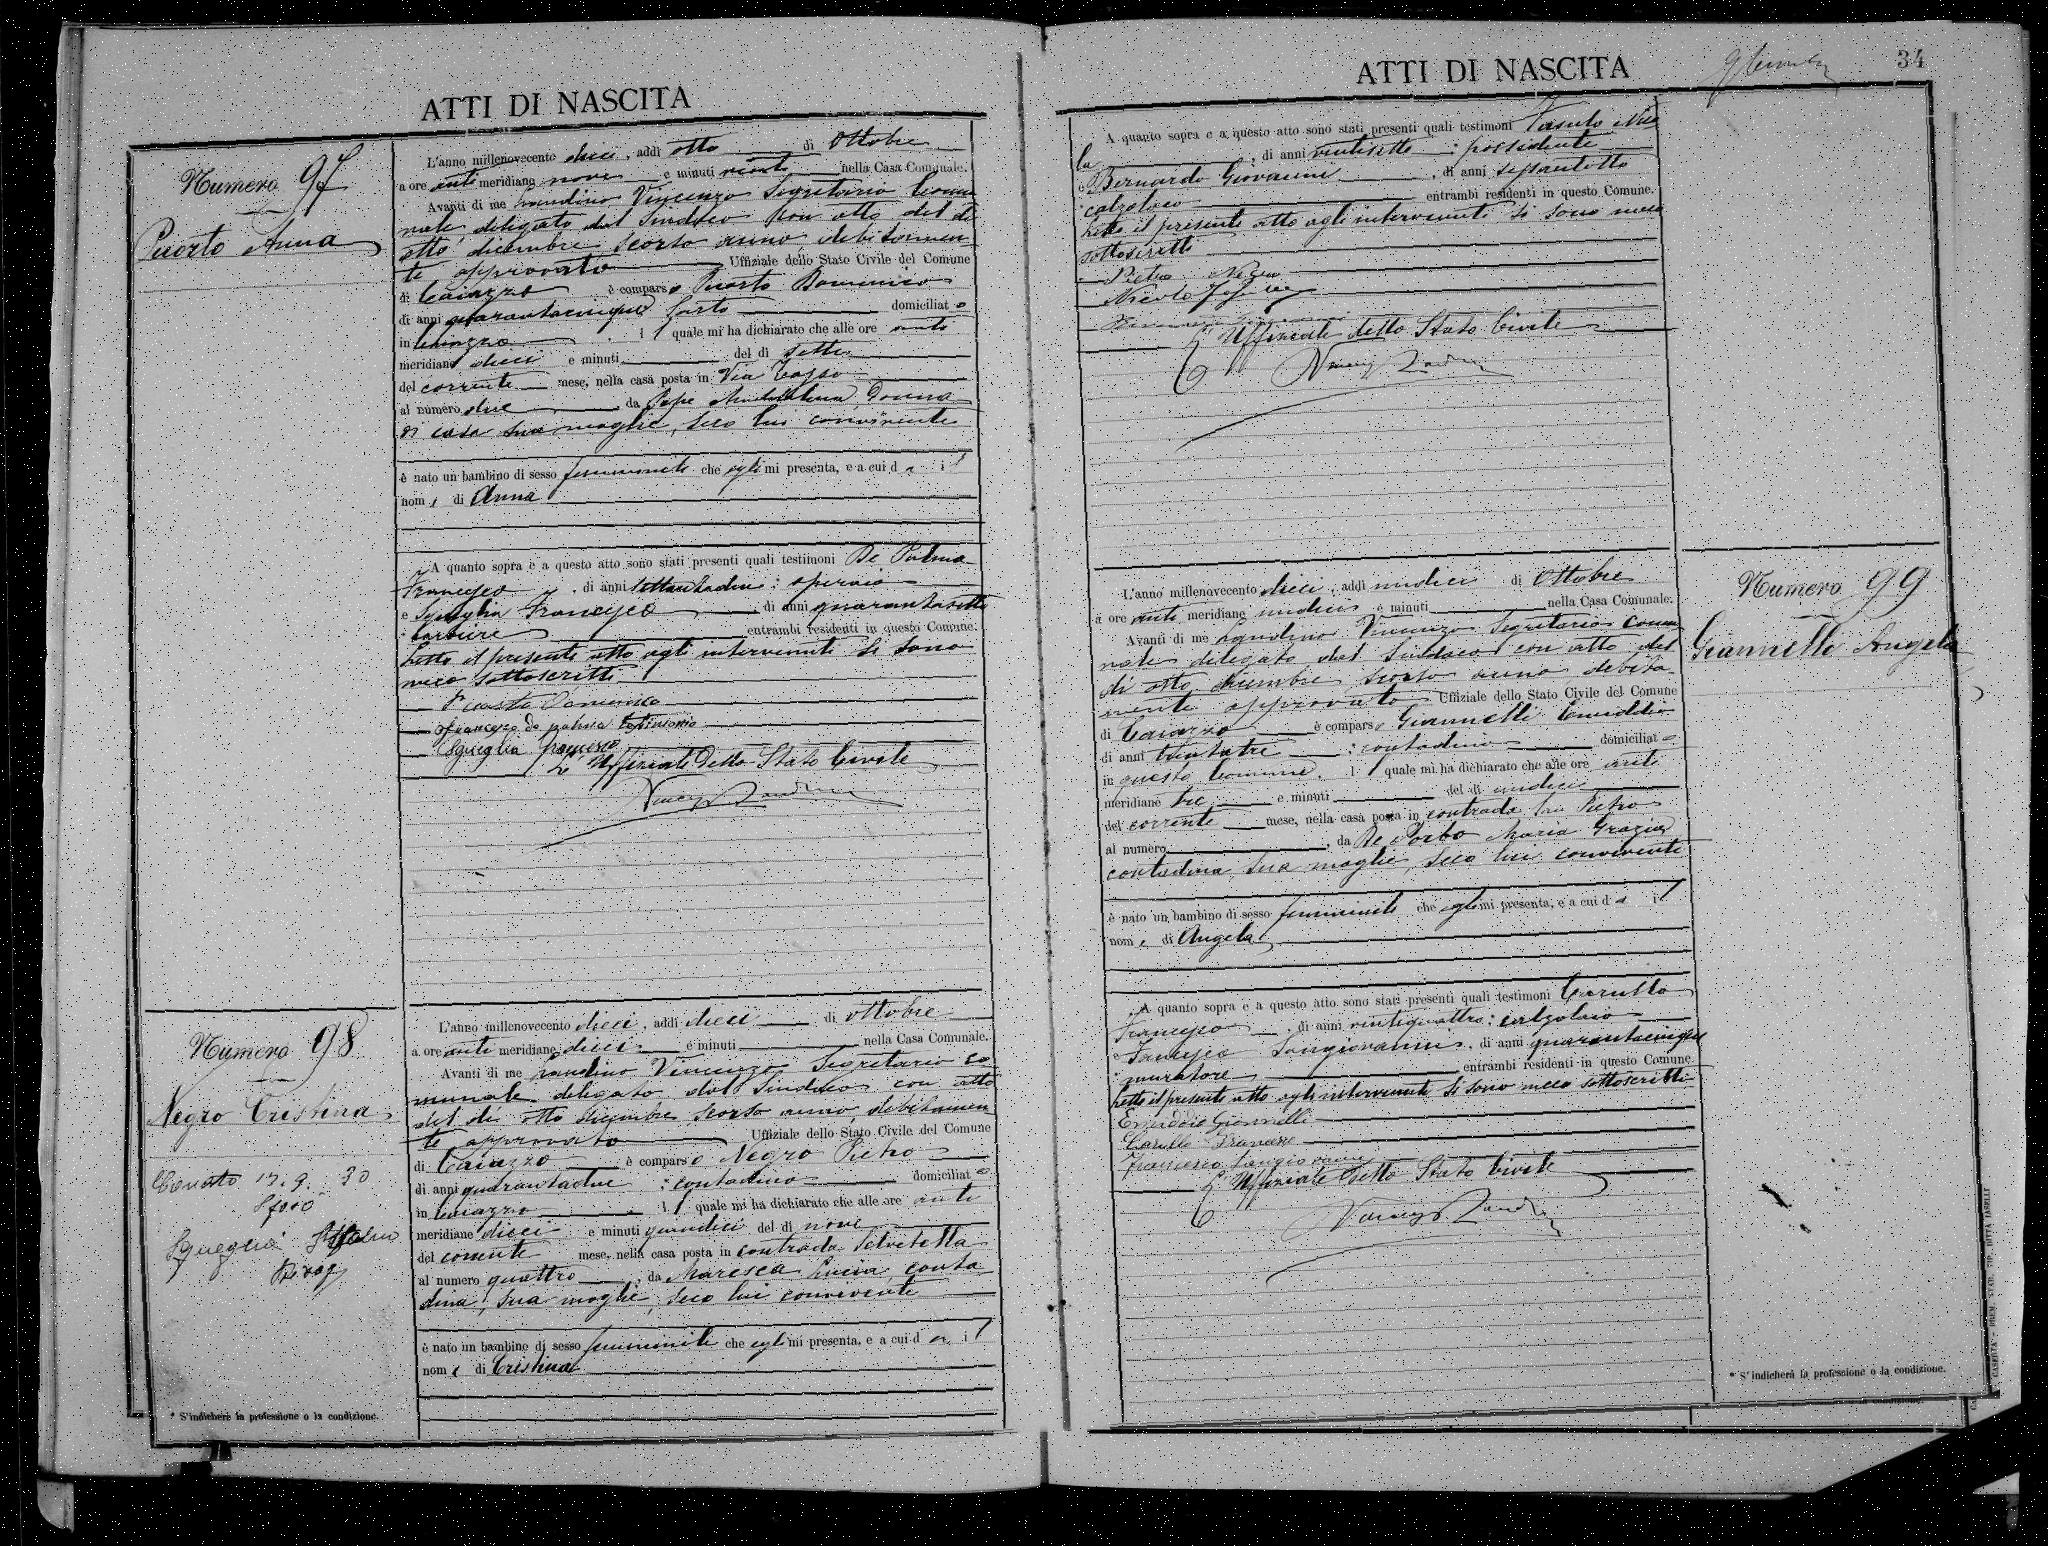 ATTI DI NASCITA
Numero 97
Puorto Anna
L'anno millenovecento dieci, addì otto di Ottobre
a ore anti meridiane nove e minuti venti nella Casa Comunale.
Avanti di me Vincenzo Segretario Comu
nale delegato dal Sindaco con atto del dì
otto dicembre scorso anno, debitamen
te approvato Uffiziale dello Stato Civile del Comune
di Caiazzo è comparso Puorto Domenico
di anni quarantacinque sarto domiciliato
in Caiazzo, il quale mi ha dichiarato che alle ore anti
meridiane dieci e minuti del dì sette
del corrente mese, nella casa posta in Via Tasso
al numero due da Pepe Maddalena, Donna
di casa sua moglie, seco lui convivente
è nato un bambino di sesso femminile che egli mi presenta, e a cui dà il
nome di Anna
A quanto sopra e a questo atto sono stati presenti quali testimoni De Palma
Francesco, di anni settantadue: operaio
e Squeglia Francesco, di anni quarantasette
barbiere entrambi residenti in questo Comune.
Letto il presente atto agli intervenuti si sono
meco sottoscritti
Puorto Domenico
Francesco de palma testimonio
Squeglia Francesco
L'Uffiziale dello Stato Civile
Numero 98
Negro Cristina
17. 9. 30
L'anno millenovecento dieci, addì dieci di Ottobre
a ore anti meridiane dieci e minuti nella Casa Comunale.
Avanti di me Vincenzo Segretario co
munale delegato dal Sindaco con atto
del dì otto dicembre scorso anno debitamen
te approvato Uffiziale dello Stato Civile del Comune
di Caiazzo è comparso Negro Pietro
di anni quarantadue: contadino domiciliato
in Caiazzo, il quale mi ha dichiarato che alle ore anti
meridiane dieci e minuti quindici del dì nove
del corrente mese, nella casa posta in contrada Selvetella
al numero quattro, da Maresca Lucia, conta
dina, sua moglie, seco lui convivente
è nato un bambino di sesso femminile che egli mi presenta, e a cui dà il
nome di Cristina
* S'indicherà la professione o la condizione.
ATTI DI NASCITA
34
A quanto sopra e a questo atto sono stati presenti quali testimoni Fasulo Nico
la, di anni ventisette: possidente
e Bernardo Giovanni, di anni
calzolaio entrambi residenti in questo Comune.
Letto il presente atto agli intervenuti si sono meco
sottoscritti
Pietro Negro
Nicola
L'Uffiziale dello Stato Civile
Numero 99
Giannelli Angela
L'anno millenovecento dieci, addì undici di Ottobre
a ore anti meridiane undici e minuti nella Casa Comunale.
Avanti di me Vincenzo Segretario comu
nale delegato dal Sindaco con atto del
dì otto dicembre scorso anno debita
mente approvato Uffiziale dello Stato Civile del Comune
di Caiazzo è comparso Giannelli Emiddio
di anni trentatre: contadino domiciliato
in questo Comune, il quale mi ha dichiarato che alle ore anti
meridiane tre e minuti del dì undici
del corrente mese, nella casa posta in contrada San Pietro
al numero, da Maria Grazia
contadina sua moglie, seco lui convivente
è nato un bambino di sesso femminile che egli mi presenta, e a cui dà il
nome di Angela
A quanto sopra e a questo atto sono stati presenti quali testimoni Carullo
Francesco, di anni ventiquattro: calzolaio
e Francesco Sangiovanni, di anni quarantacinque
muratore entrambi residenti in questo Comune.
Letto il presente atto agli intervenuti si sono meco sottoscritti
Emiddio Giannelli
Carullo Francesco
Francesco Sangiovanni
L'Uffiziale dello Stato Civile
* S'indicherà la professione o la condizione.